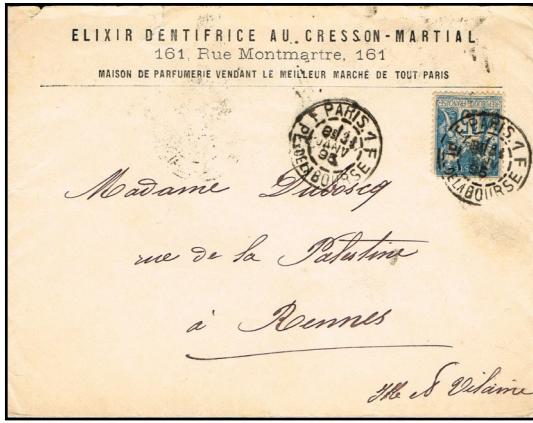 ELIXIR DENTIFRICE AU CRESSON-MARTIAL
161, Rue Montmartre, 161
MAISON DE PARFUMERIE VENDANT LE MEILLEUR MARCHÉ DE TOUT PARIS
PARIS 1
PL. DE LA BOURSE
JANV
PARIS 1
DE LA BOURSE
Madame Duboscq
rue de la Palestine
à Rennes
Ille & Vilaine